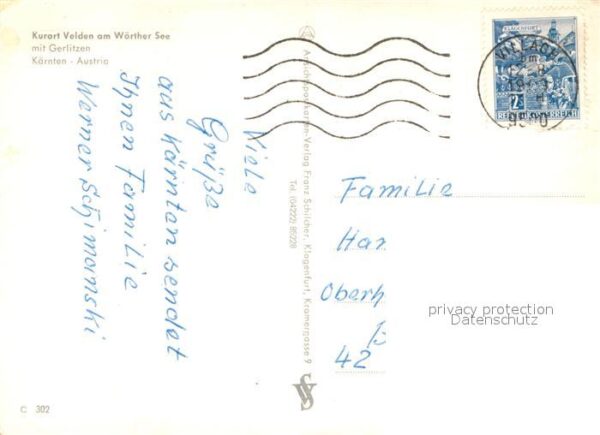 Kurort Velden am Wörther See
mit Gerlitzen
Kärnten - Austria
Viele
Grüße
aus Kärnten sendet
Ihnen Familie
Werner Schimanski
Ansichtspostkarten-Verlag Franz Schilcher, Klagenfurt, Kramergasse 9
KLAGENFURT
REPUBLIK ÖSTERREICH
VILLACH
Familie
Har
Oberh
B
42
privacy protection
Datenschutz
C 302